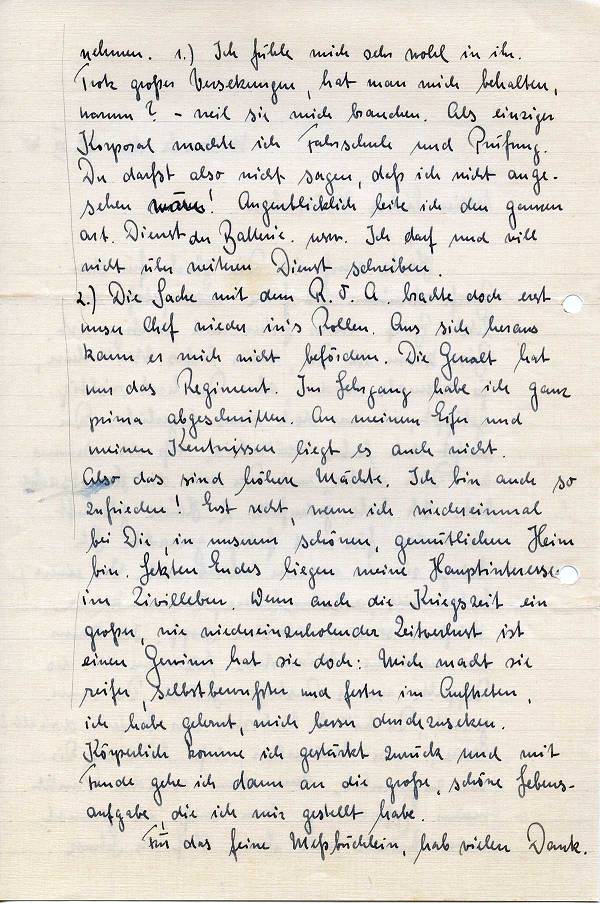 nehmen. 1.) Ich fühle mich sehr wohl in ihr.
Trotz großer Versetzungen, hat man mich behalten,
warum? - weil sie mich brauchen. Als einziger
Korporal machte ich Fahrschule und Prüfung.
Du darfst also nicht sagen, daß ich nicht ange-
sehen wäre! Augenblicklich leite ich den ganzen
art. Dienst der Batterie. usw. Ich darf und will
nicht über weiteren Dienst schreiben.
2.) Die Sache mit dem R. A. brachte doch erst
unser Chef wieder in's Rollen. Aus sich heraus
kann er mich nicht befördern. Die Gewalt hat
nur das Regiment. Im Lehrgang habe ich ganz
prima abgeschnitten. An meinem Eifer und
meinen Kentnissen liegt es auch nicht.
Also das sind höhere Mächte. Ich bin auch so
zufrieden! Erst recht, wenn ich wiedereinmal
bei Dir, in unserem schönen, gemütlichen Heim
bin. Letzten Endes liegen meine Hauptinteresse
im Zivilleben. Wenn auch die Kriegszeit ein
großer, nie wiedereinzuholender Zeitverlust ist
einen Gewinn hat sie doch: Mich macht sie
reifer, selbstbewußter und fester im Auftreten,
ich habe gelernt, mich besser durchzusetzen.
Körperlich komme ich gestärkt zurück und mit
Freude gehe ich dann an die große, schöne Lebens-
aufgabe, die ich mir gestellt habe.
Für das feine Meßbüchlein, hab vielen Dank.